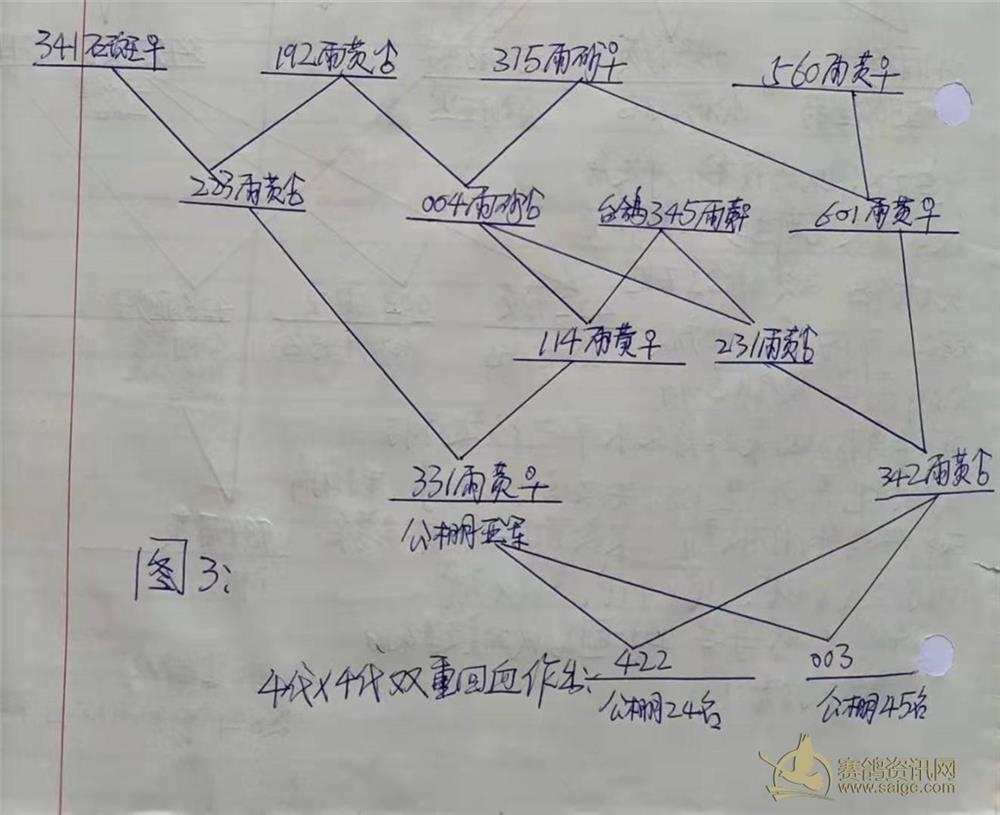 341石斑♀
192雨黄♂
375雨砂♀
560雨黄♀
223雨黄♂
004雨砂♂
台鸽345雨
601雨黄♀
114雨黄♀
231雨黄♂
331雨黄♀
342雨黄♂
公棚亚军
图3:
4代×4代双重回血作出:
422
003
公棚24名
公棚45名
赛鸽资讯网
www.saigc.com